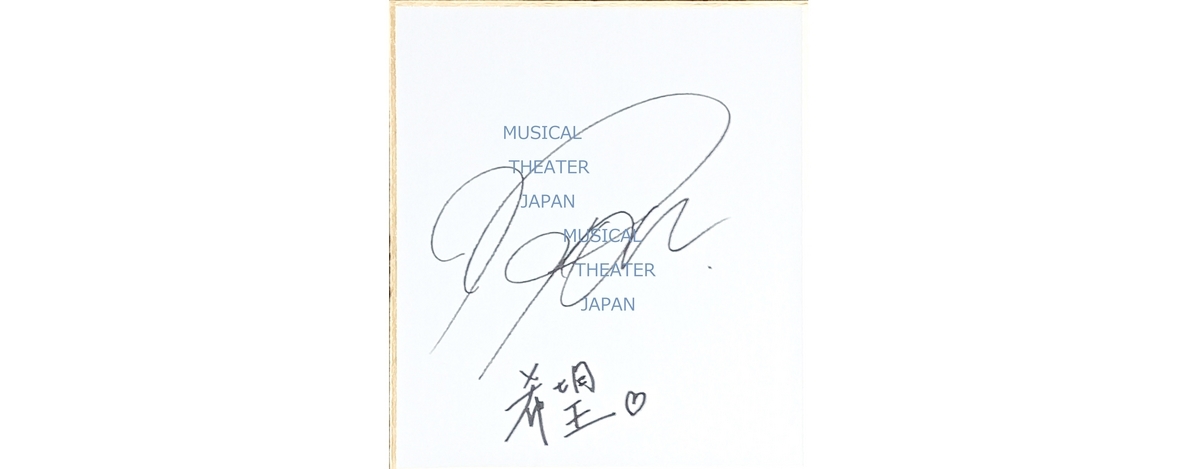 MUSICAL
THEATER
JAPAN
MUSICAL
THEATER
JAPAN
希望♡